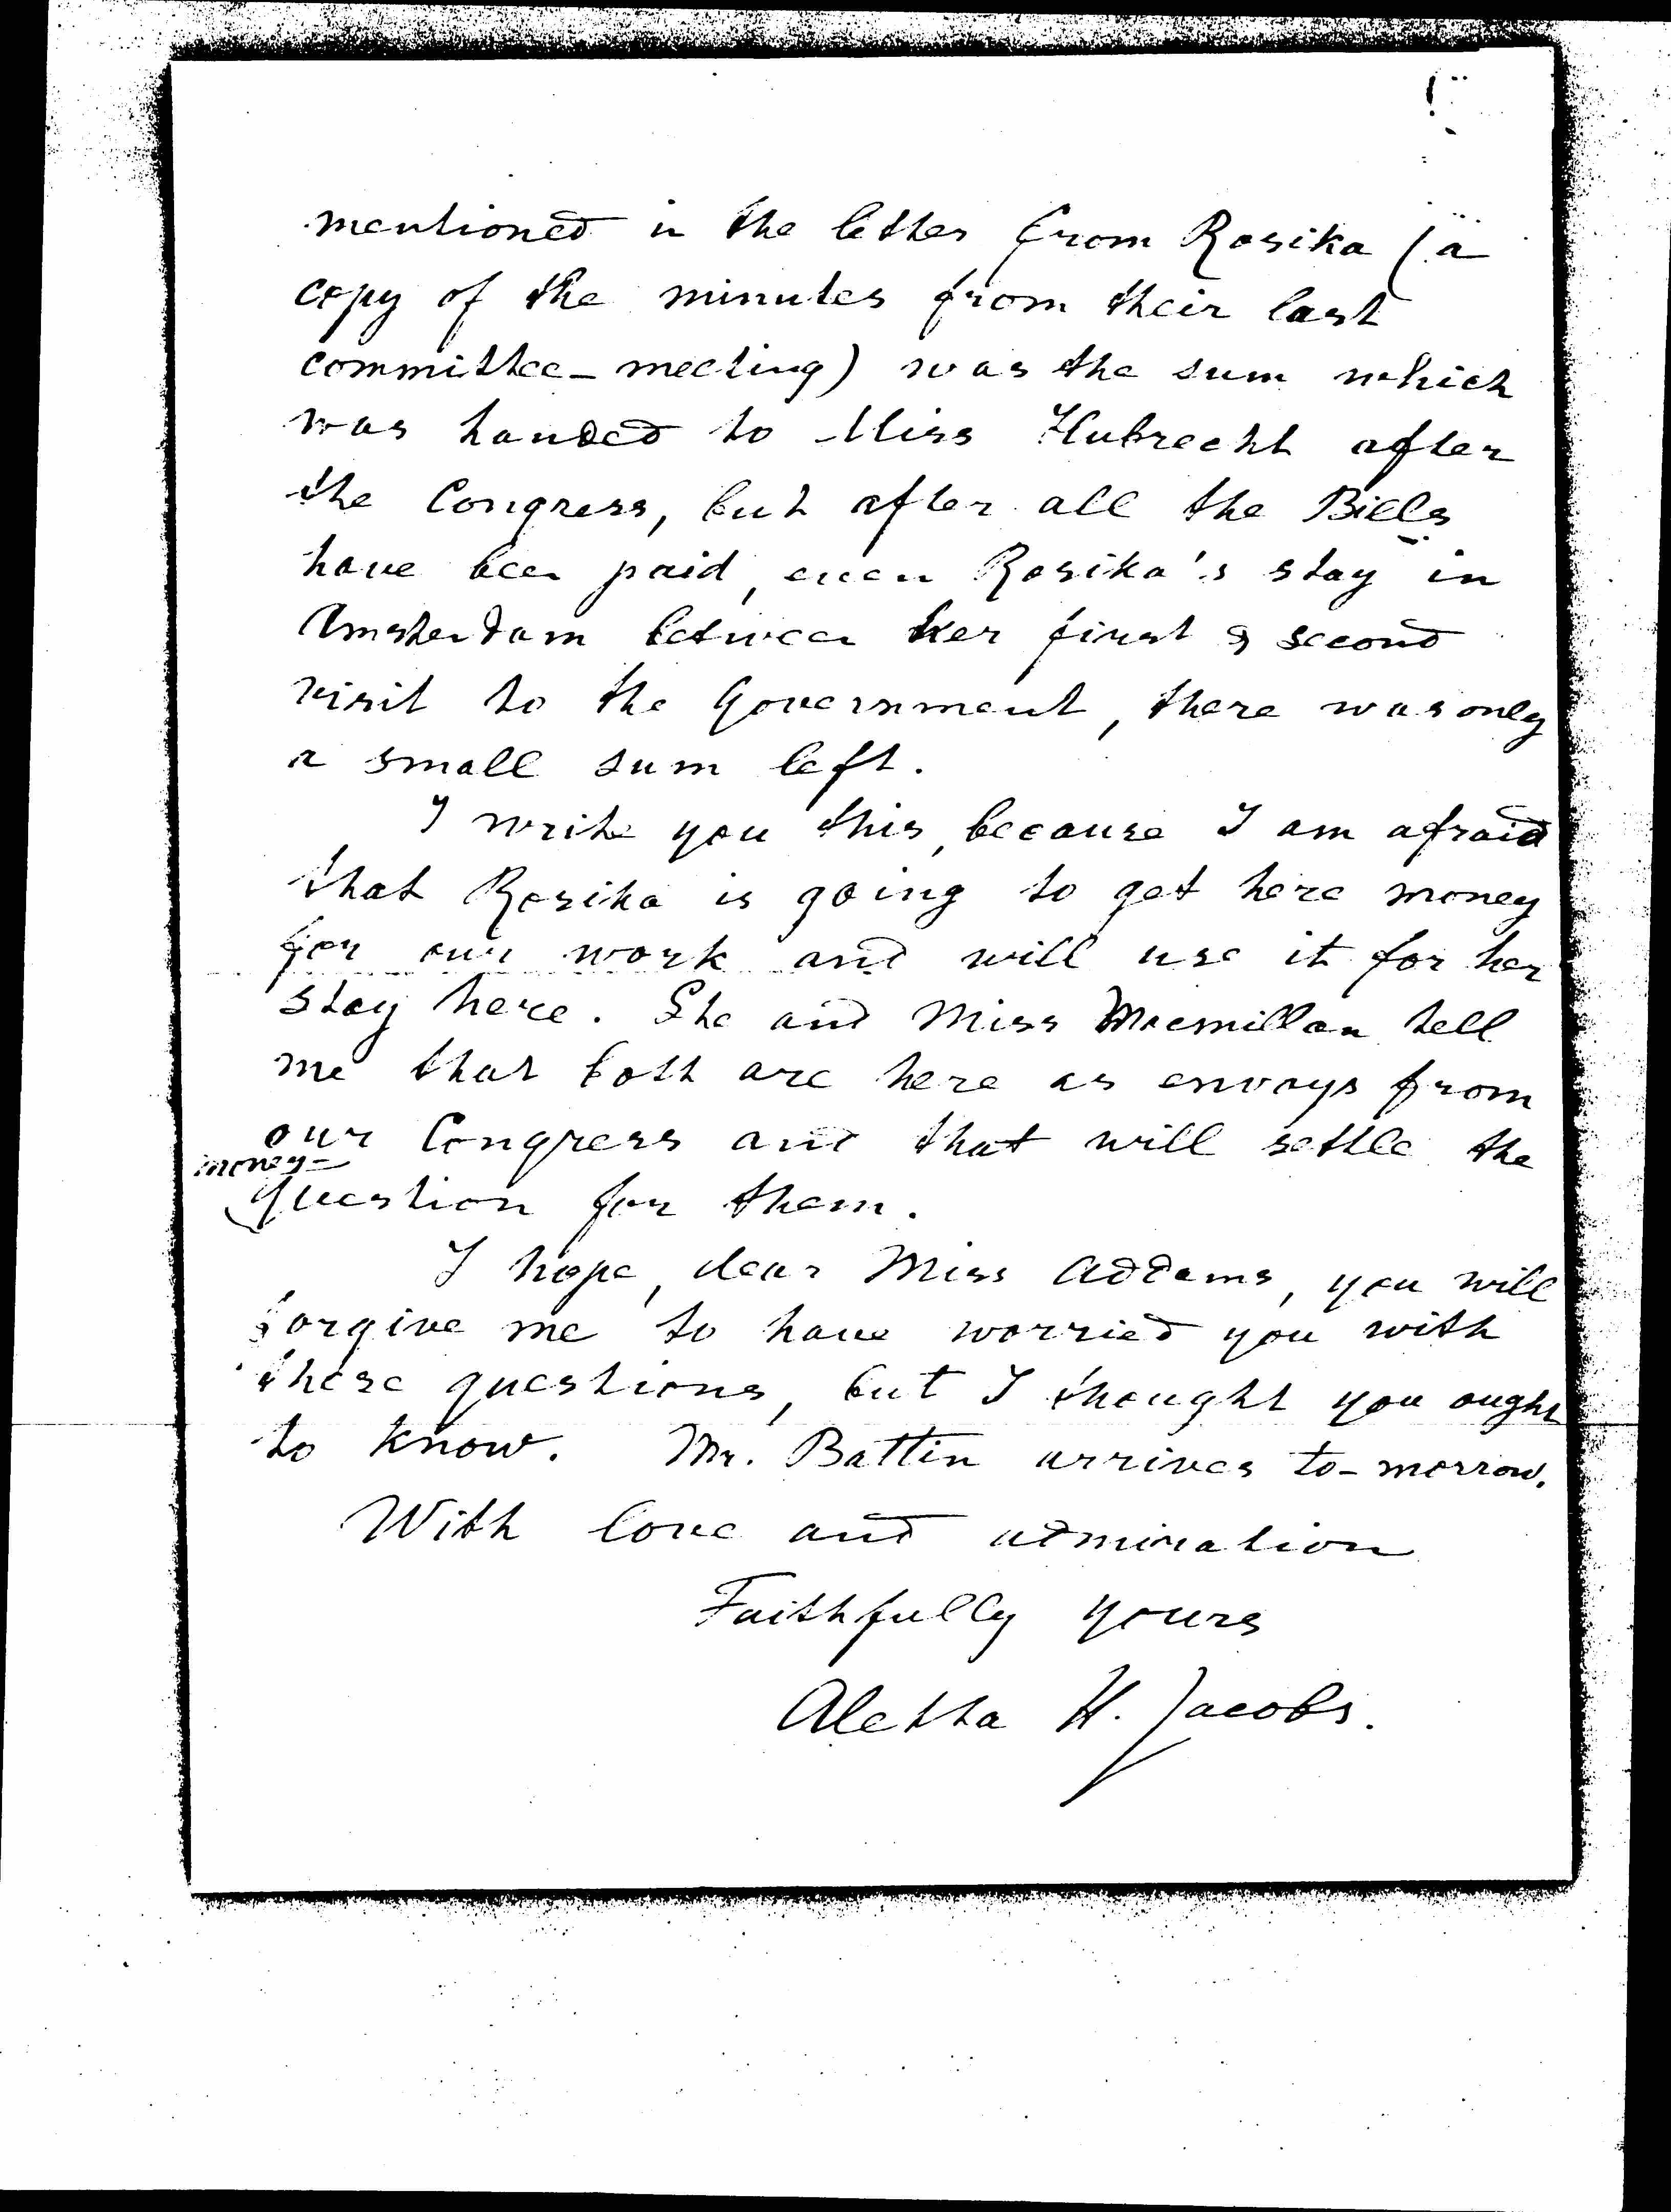 mentioned in the letter from Rosika (a
copy of the minutes from their last
committee-meeting) was the sum which
was handed to Miss Hubrecht after
the Congress, but after all the Bills
have been paid, even Rosika's stay in
Amsterdam between her first & second
visit to the Government, there was only
a small sum left.
I write you this, because I am afraid
that Rosika is going to get here money
for our work and will use it for her
stay here. She and Miss Macmillan tell
me that both are here as envoys from
our Congress and that will settle the
money-
question for them.
I hope, dear Miss Addams, you will
forgive me to have worried you with
these questions, but I thought you ought
to know. Mr. Battin arrives to-morrow.
With love and admiration
Faithfully yours
Aletta H. Jacobs.